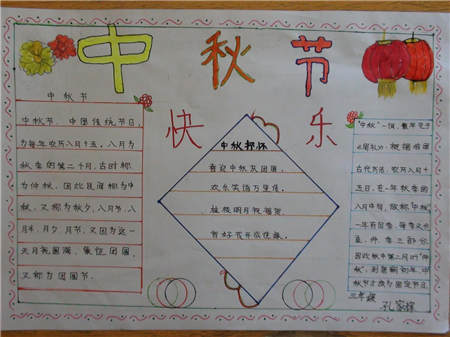 中秋节
快乐
中秋节
中秋节，中国传统节日，
为每年农历八月十五，八月为
秋季的第二个月，古时称
为仲秋，因此民间称为中
秋，又称为秋夕，八月节，八
月半，月夕月节，又因为这一
天月亮圆满，象征团圆，
又称为团圆节。
中秋抒怀
喜迎中秋友团圆，
欢乐笑语万里传。
有好花开
"中秋"一词，最早见于
《周礼》，根据我国
古代历法，农历八月十
五日，在一年秋季的
八月中旬，故称"中秋"
一年有四季，每季又分
孟、仲、季三部分，
因此秋中第二月叫"仲
秋"，到唐朝初年，中
秋节才成为固定节日。
三年级
孔家